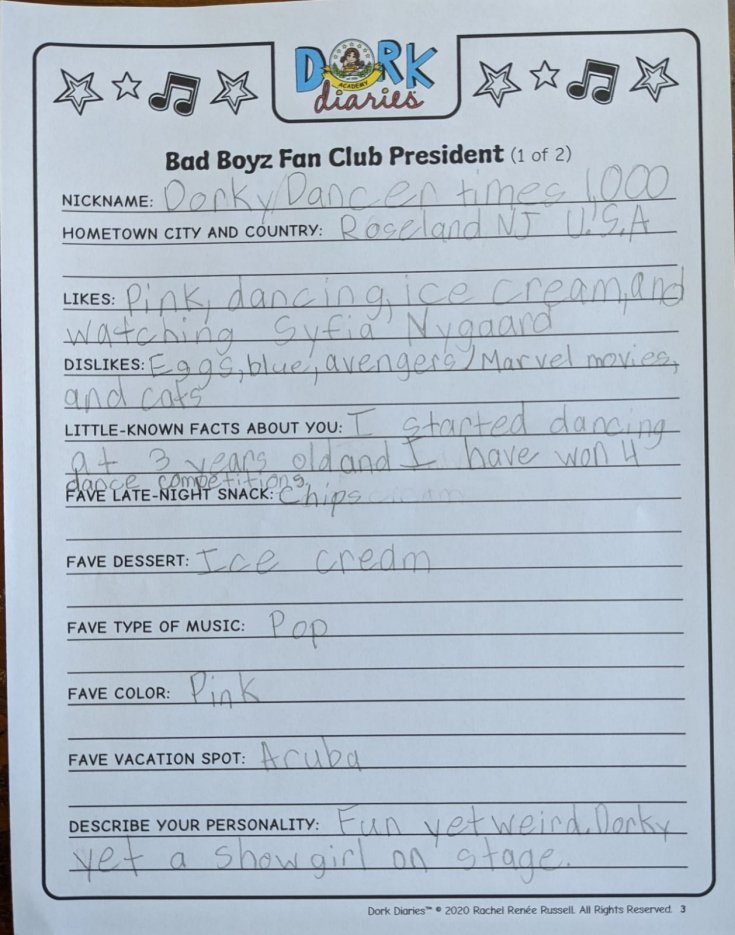 DORK
ACADEMY
diaries
Bad Boyz Fan Club President (1 of 2)
NICKNAME: Dorky Dancer times 1,000
HOMETOWN CITY AND COUNTRY: Roseland NJ U.S.A
LIKES: Pink, dancing, ice cream, and
watching Syfia Nygaard
DISLIKES: Eggs, blue, avengers/Marvel movies,
and cats
LITTLE-KNOWN FACTS ABOUT YOU: I started dancing
at 3 years old and I have won 4
dance competitions.
FAVE LATE-NIGHT SNACK: Chips
FAVE DESSERT: Ice cream
FAVE TYPE OF MUSIC: Pop
FAVE COLOR: Pink
FAVE VACATION SPOT: Aruba
DESCRIBE YOUR PERSONALITY: Fun yet weird. Dorky
yet a showgirl on stage.
Dork Diaries™ © 2020 Rachel Renée Russell. All Rights Reserved. 3